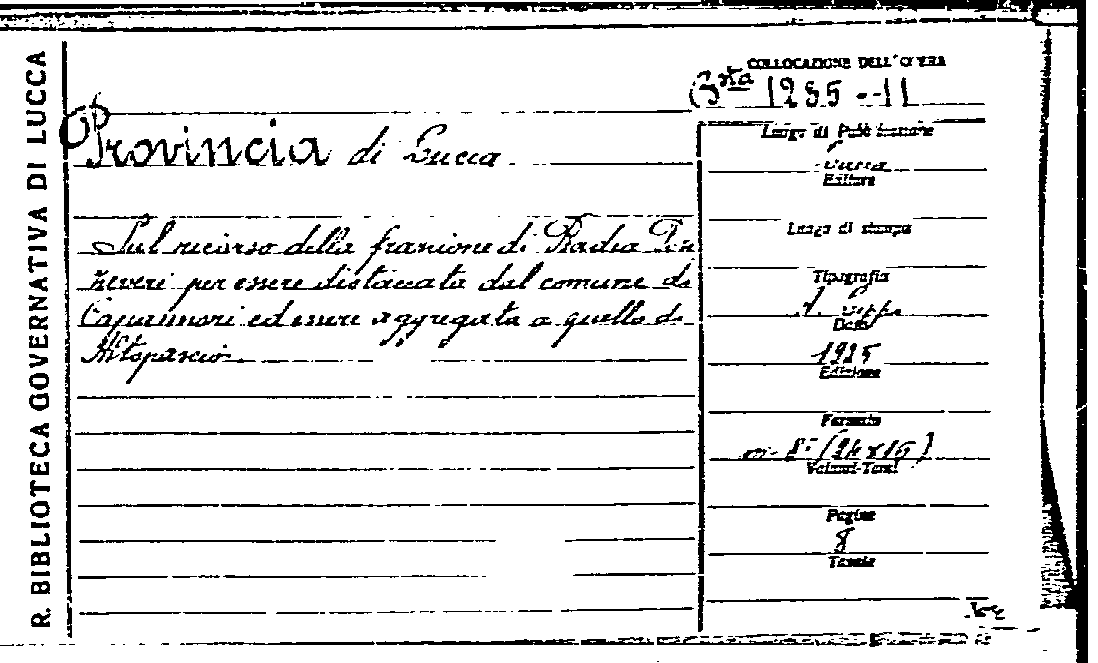 R. BIBLIOTECA GOVERNATIVA DI LUCCA
COLLOCAZIONE DELL'OPERA
Bsta 1295 - 11
Provincia di Lucca.
Sul ricorso della frazione di Badia Poz
zeveri per essere distaccata dal comune di
Capannori ed essere aggregata a quello di
Altopascio
Luogo di Pubblicazione
Lucca
Editore
Luogo di stampa
Tipografia
Data
1925
Edizione
Formato
in-8° (24x15)
Volumi-Tomi
Pagine
8
Tavole